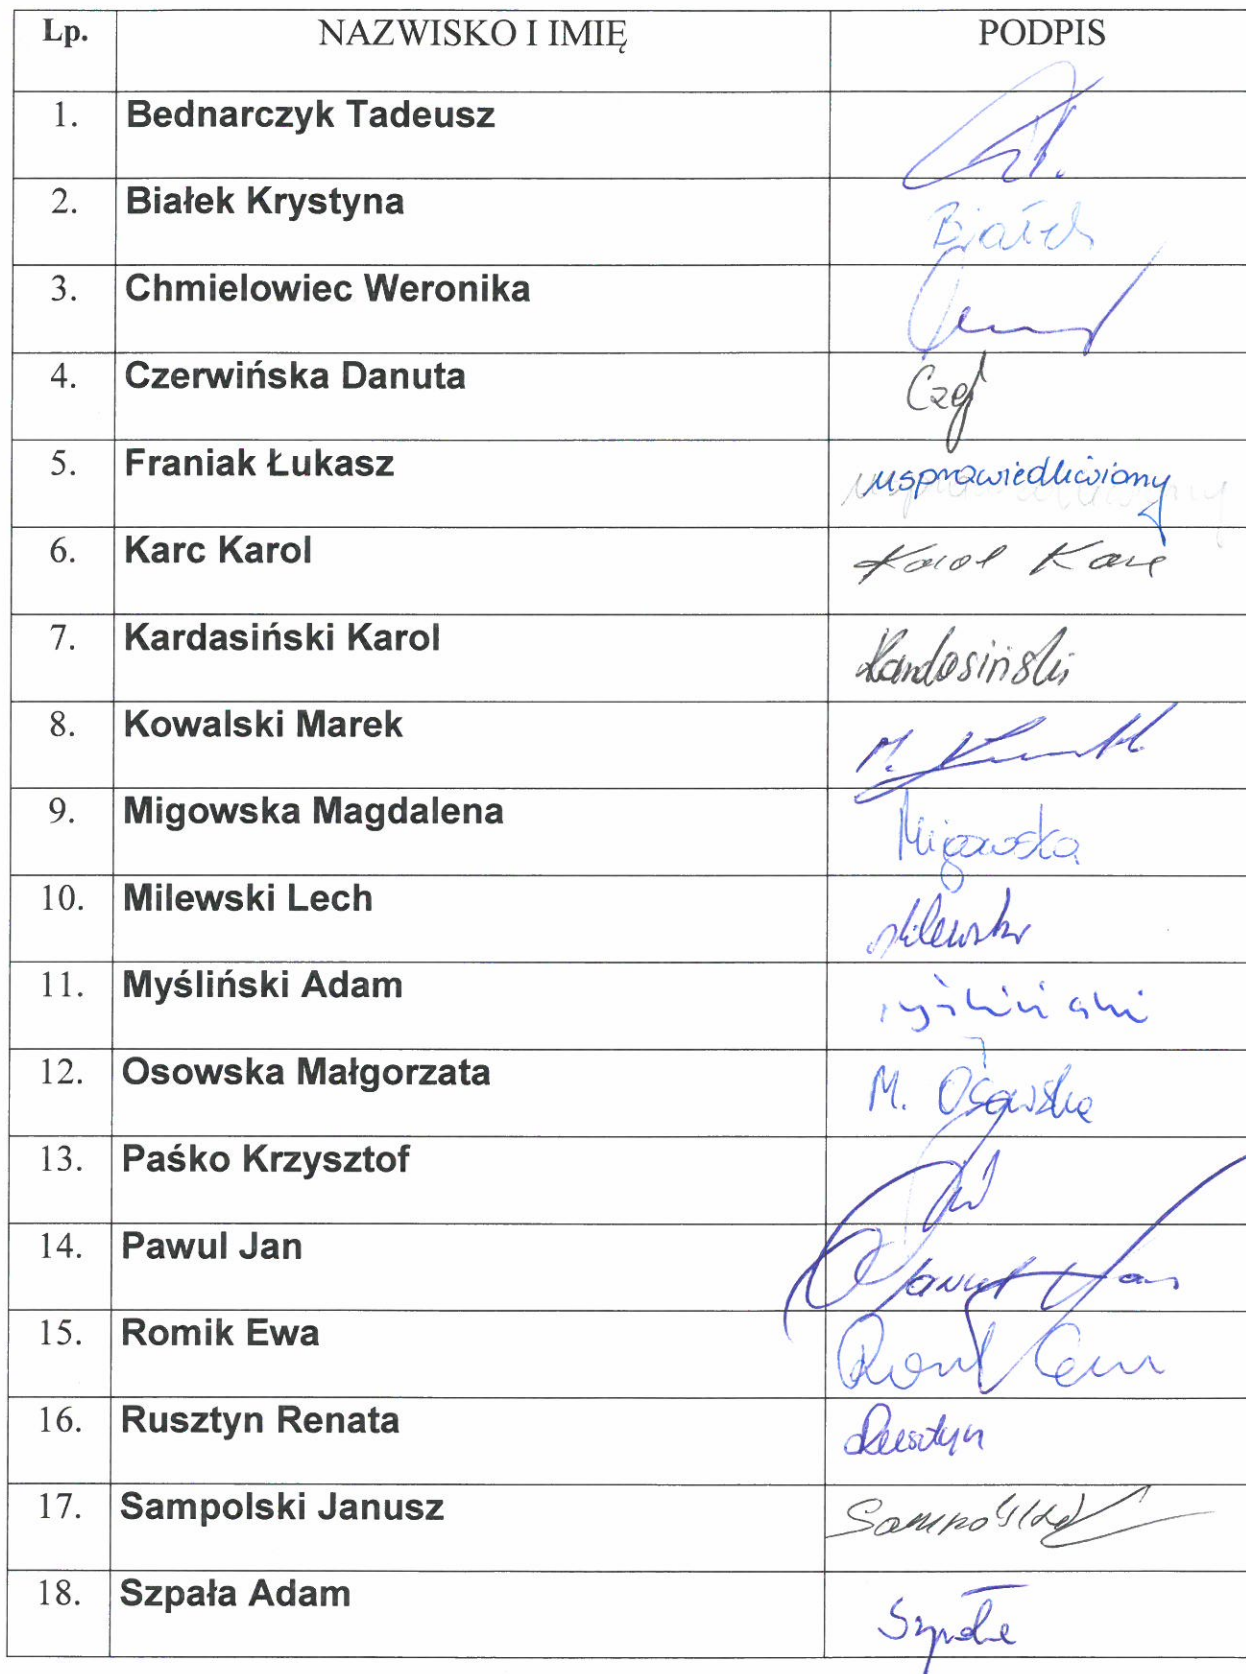 Lp. NAZWISKO I IMIĘ PODPIS
1. Bednarczyk Tadeusz
2. Białek Krystyna Białek
3. Chmielowiec Weronika
4. Czerwińska Danuta
5. Franiak Łukasz usprawiedliwiony
6. Karc Karol Karol Karc
7. Kardasiński Karol Kardasiński
8. Kowalski Marek M.
9. Migowska Magdalena Migowska
10. Milewski Lech Milewski
11. Myśliński Adam myśliński
12. Osowska Małgorzata M. Osowska
13. Paśko Krzysztof
14. Pawul Jan Pawul Jan
15. Romik Ewa
16. Rusztyn Renata Rusztyn
17. Sampolski Janusz
18. Szpała Adam Szpała